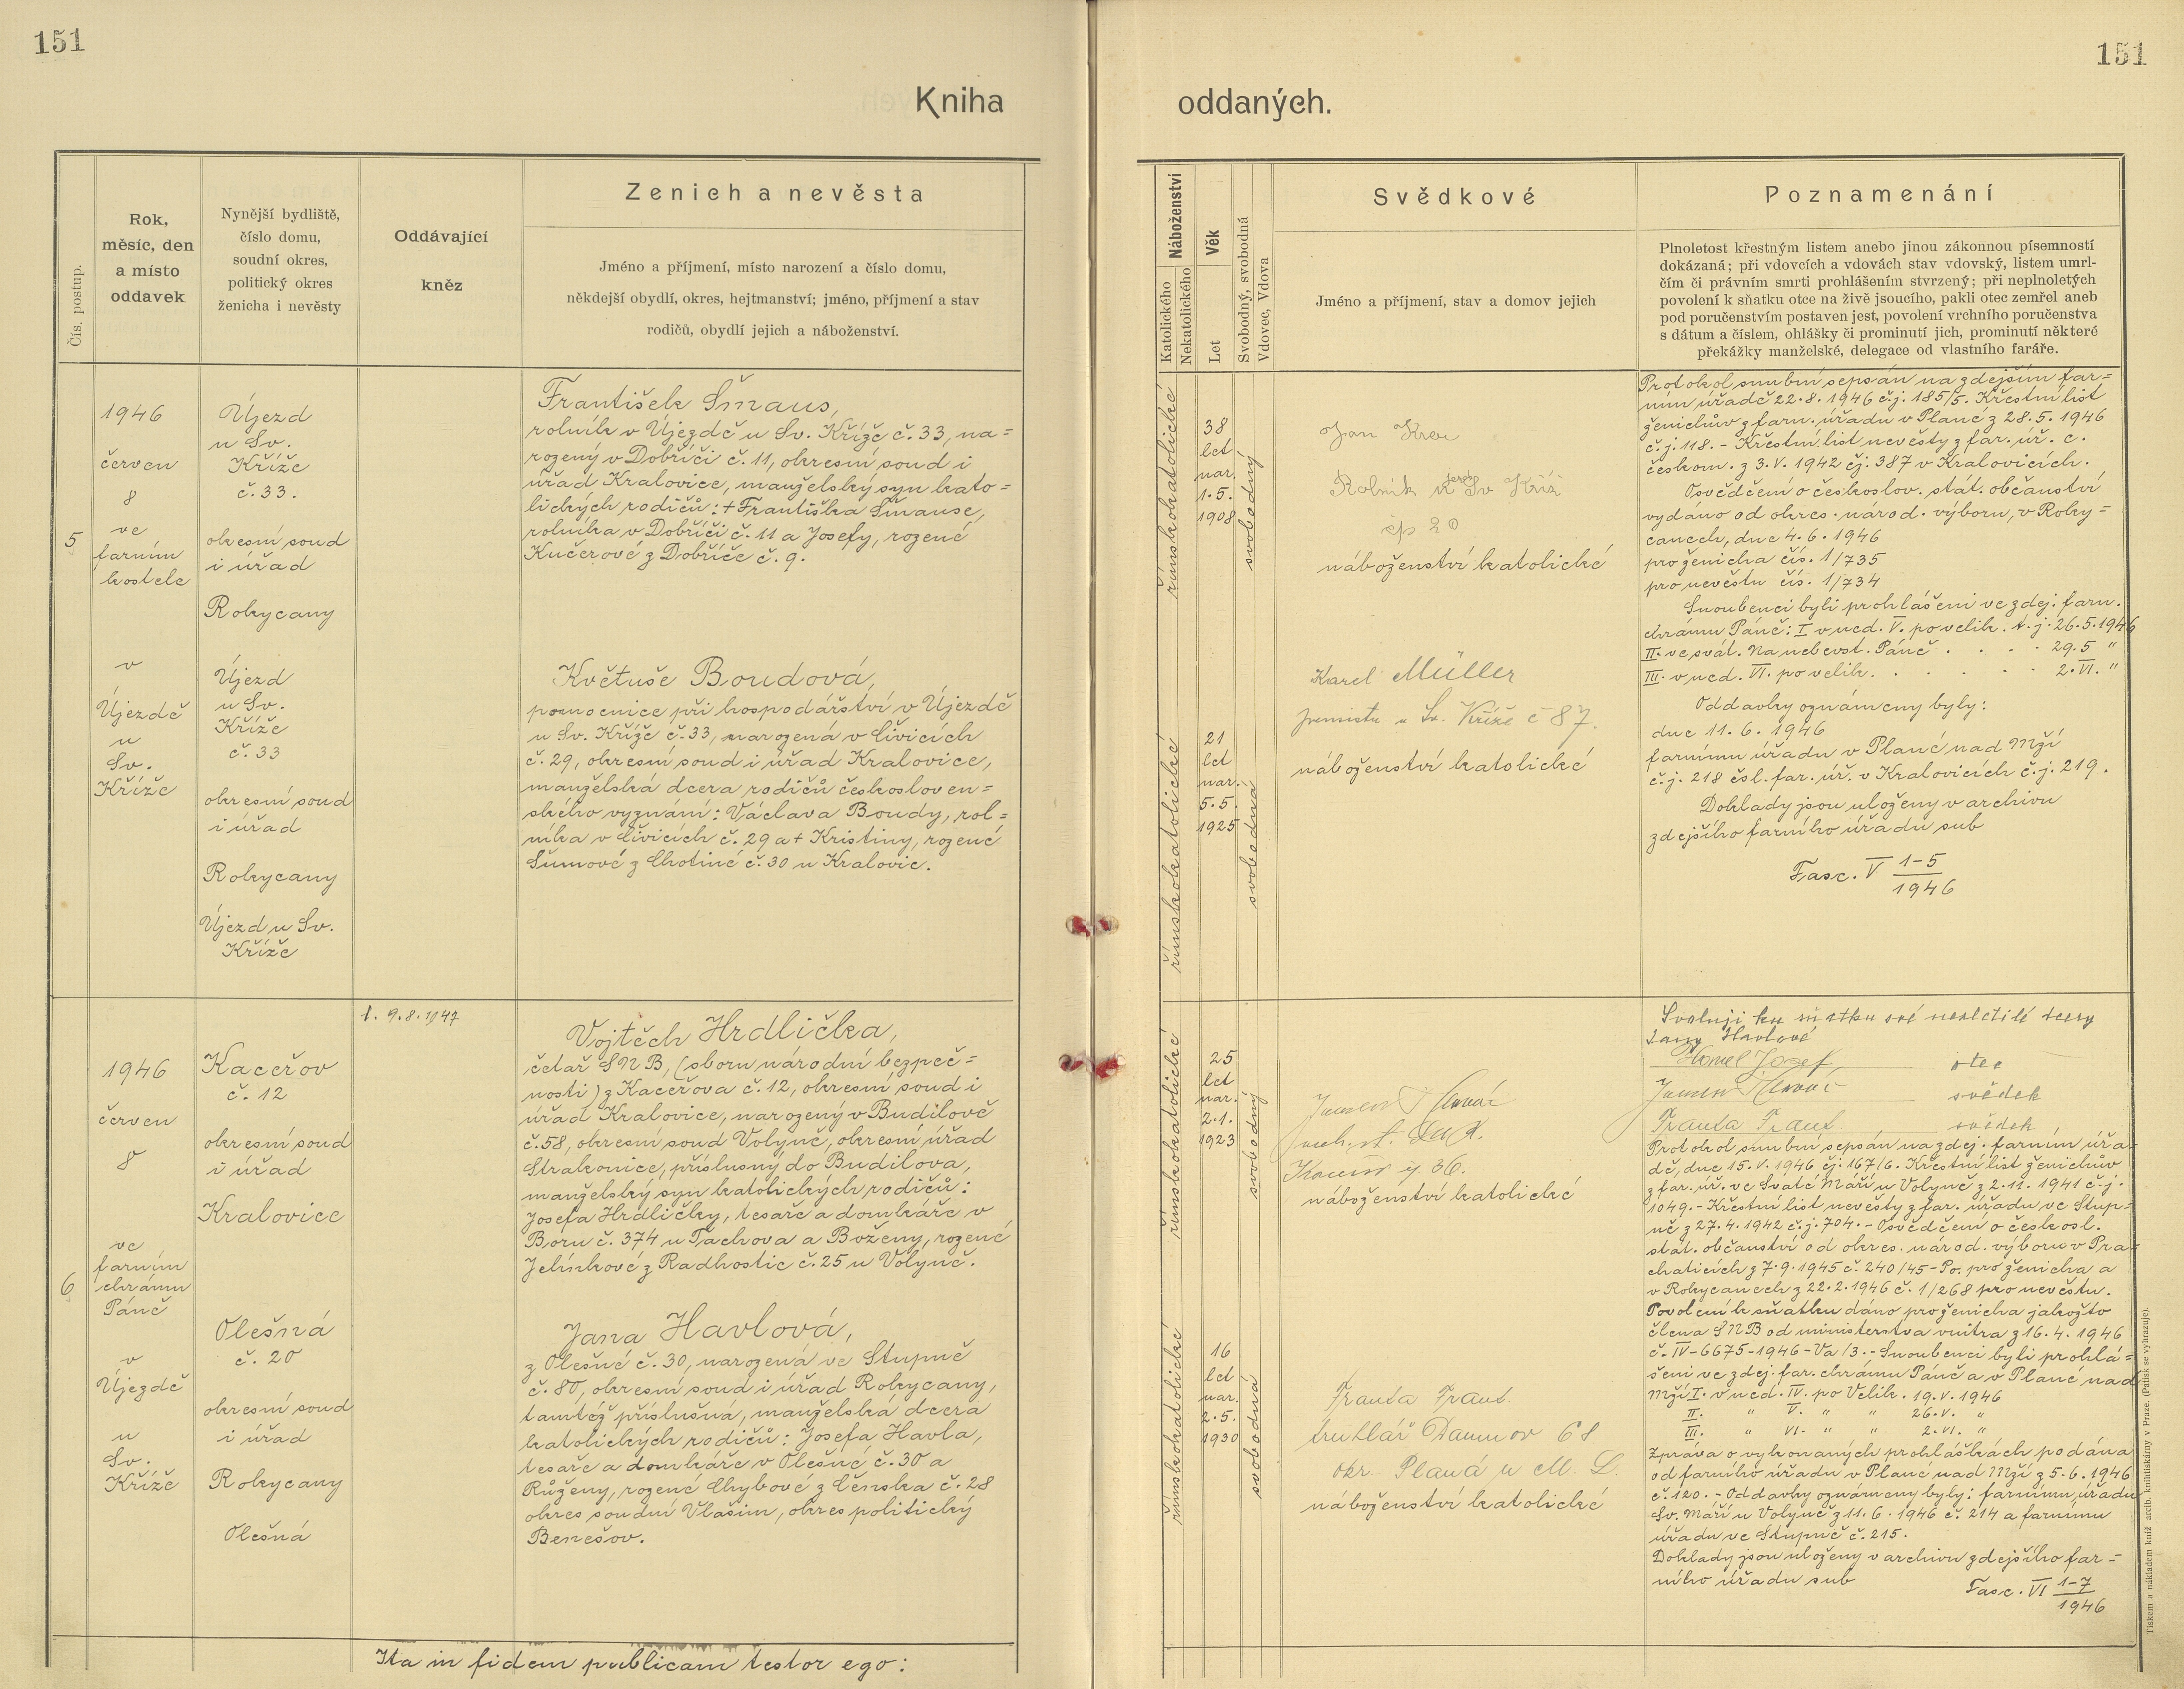 151
151
Kniha
oddaných.
Čís. postup.
Rok,
měsíc, den
a místo
oddavek
Nynější bydliště,
číslo domu,
soudní okres,
politický okres
ženicha i nevěsty
Oddávající
kněz
Zenich a nevěsta
Jméno a příjmení, místo narození a číslo domu,
někdejší obydlí, okres, hejtmanství; jméno, příjmení a stav
rodičů, obydlí jejich a náboženství.
Náboženství
Katolického
Nekatolického
Věk
Let
Svobodný, svobodná
Vdovec, Vdova
Svědkové
Jméno a příjmení, stav a domov jejich
Poznamenání
Plnoletost křestným listem anebo jinou zákonnou písemností
dokázaná; při vdovcích a vdovách stav vdovský, listem umrl-
čím či právním smrti prohlášením stvrzený; při neplnoletých
povolení k sňatku otce na živě jsoucího, pakli otec zemřel aneb
pod poručenstvím postaven jest, povolení vrchního poručenstva
s dátum a číslem, ohlášky či prominutí jich, prominutí některé
překážky manželské, delegace od vlastního faráře.
5
1946
červen
8
ve
farním
kostele
v
Újezdě
u
Sv.
Kříže
Újezd
u Sv.
Kříže
č. 33.
okresní soud
i úřad
Rokycany
Újezd
u Sv.
Kříže
č. 33
okresní soud
i úřad
Rokycany
Újezd u Sv.
Kříže
František Šmaus,
rolník v Újezdě u Sv. Kříže č. 33, na=
rozený v Dobříči č. 11, okresní soud i
úřad Kralovice, manželský syn kato=
lických rodičů: + Františka Šmause,
rolníka v Dobříči č. 11 a Josefy, rozené
Kučerové z Dobříče č. 9.
Květuše Boudová,
pomocnice při hospodářství v Újezdě
u Sv. Kříže č. 33, narozená v Čivicích
č. 29, okresní soud i úřad Kralovice,
manželská dcera rodičů českosloven=
ského vyznání: Václava Boudy, rol=
níka v Čivicích č. 29 a + Kristiny, rozené
Šumové z Chotiné č. 30 u Kralovic.
římskokatolické
38
let
nar.
1.5.
1908
svobodný
římskokatolické
21
let
nar.
5.5.
1925
svobodná
Jan
Rolník u Sv Kříž
čp 20
náboženství katolické
Karel Müller
u Sv. Kříže č 87.
náboženství katolické
Protokol snubní sepsán na zdejším far=
ním úřadě 22.8.1946 č.j. 185/5. Křestní list
ženichův z farn. úřadu v Plané z 28.5.1946
č.j. 118. - Křestní list nevěsty z far. úř. c.
českom. z 3.V.1942 čj. 387 v Kralovicích.
Osvědčení o českoslov. stát. občanství
vydáno od okres. národ. výboru, v Roky=
canech, dne 4.6.1946
pro ženicha čís. 1/735
pro nevěstu čís. 1/734
Snoubenci byli prohlášeni ve zdej. farn.
chrámu Páně: I v ned. V. po velik. t.j. 26.5.1946
II. ve svát. Nanebevst. Páně . . . . 29.5 "
III. v ned. VI. po velik. . . . . 2.VI. "
Oddavky oznámeny byly:
dne 11.6.1946
farnímu úřadu v Plané nad Mží
č.j. 218 čsl. far. úř. v Kralovicích č.j. 219.
Doklady jsou uloženy v archivu
zdejšího farního úřadu sub
Fasc. V 1-5
1946
6
1946
červen
8
ve
farním
chrámu
Páně
v
Újezdě
u
Sv.
Kříže
Kaceřov
č. 12
okresní soud
i úřad
Kralovice
Olešná
č. 20
okresní soud
i úřad
Rokycany
Olešná
1. 9.8.1947
Vojtěch Hrdlička,
četař SNB, (sboru národní bezpeč=
nosti) z Kaceřova č. 12, okresní soud i
úřad Kralovice, narozený v Budilově
č. 58, okresní soud Volyně, okresní úřad
Strakonice, příslušný do Budilova,
manželský syn katolických rodičů:
Josefa Hrdličky, tesaře a domkáře v
Boru č. 374 u Tachova a Boženy, rozené
Jelínkové z Radhostic č. 25 u Volyně.
Jana Havlová,
z Olešné č. 30, narozená ve Stupně
č. 80, okresní soud i úřad Rokycany,
tamtéž příslušná, manželská dcera
katolických rodičů: Josefa Havla,
tesaře a domkáře v Olešné č. 30 a
Růženy, rozené Chybové z Čenska č. 28
okres soudní Vlašim, okres politický
Benešov.
římskokatolické
25
let
nar.
2.1.
1923
svobodný
římskokatolické
16
let
nar.
2.5.
1930
svobodná
36.
náboženství katolické
Franta
truhlář Damnov 68
okr. Planá u M. L.
náboženství katolické
Svoluji ku sňatku své nezletilé dcery
Jany Havlové
Havel Josef otec
svědek
Franta svědek
Protokol snubní sepsán na zdej. farním úřa=
dě, dne 15.V.1946 čj. 167/6. Křestní list ženichův
z far. úř. ve Svaté Máří u Volyně z 2.11.1941 č.j.
1049. - Křestní list nevěsty z far. úřadu ve Stup=
ně z 27.4.1942 č.j. 704. - Osvědčení o českosl.
stát. občanství od okres. národ. výboru v Pra=
chaticích z 7.9.1945 č. 240/45-Po. pro ženicha a
v Rokycanech z 22.2.1946 č. 1/268 pro nevěstu.
Povolení k sňatku dáno pro ženicha jakožto
člena SNB od ministerstva vnitra z 16.4.1946
č. IV-6675-1946-Va/3. - Snoubenci byli prohlá=
šeni ve zdej. far. chrámu Páně a v Plané nad
Mží I. v ned. IV. po Velik. 19.V.1946
II. " V. " " 26.V. "
III. " VI. " " 2.VI. "
Zpráva o vykonaných prohláškách podána
od farního úřadu v Plané nad Mží z 5.6.1946
č. 120. - Oddavky oznámeny byly: farnímu úřadu
Sv. Máří u Volyně z 11.6.1946 č. 214 a farnímu
úřadu ve Stupně č. 215.
Doklady jsou uloženy v archivu zdejšího far=
ního úřadu sub
Fasc. VI 1-7
1946
Ita in fidem publicam testor ego:
Tiskem a nákladem kníž. arcib. knihtiskárny v Praze. (Patisk se vyhrazuje).